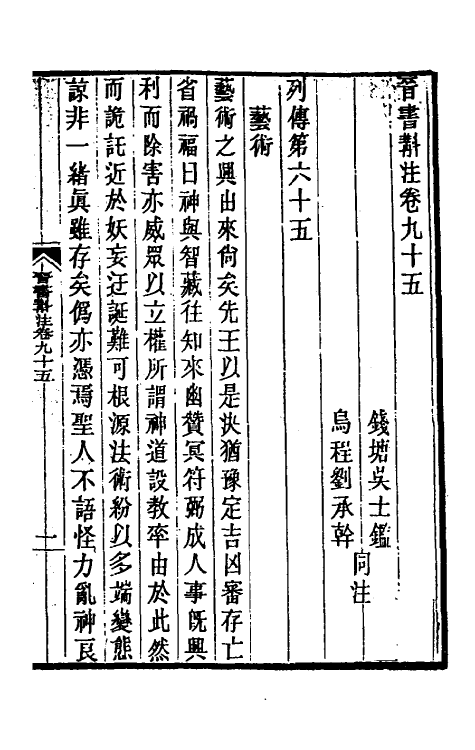 晉書斠注卷九十五
錢塘吳士鑑
烏程劉承幹
同注
列傳第六十五
藝術
藝術之興由來尚矣先王以是決猶豫定吉凶審存亡
省禍福曰神與智藏往知來幽贊冥符弼成人事旣興
利而除害亦威眾以立權所謂神道設教率由於此然
而詭託近於妖妄迂誕難可根源法術紛以多端變態
諒非一緒眞雖存矣僞亦憑焉聖人不語怪力亂神良
晉書斠注卷九十五
一